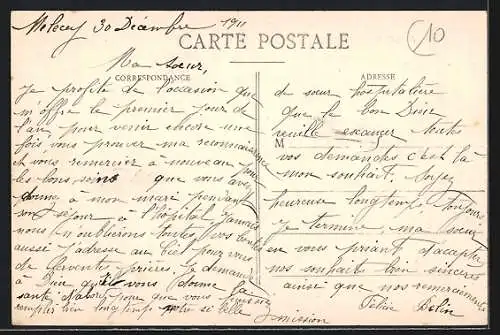 30 Décembre 1911
CARTE POSTALE
10
Ma Sœur,
CORRESPONDANCE
ADRESSE
Je profite de l'occasion que
m'offre le premier jour de
l'an, pour venir encore une
fois vous prouver ma reconnaissance
et vous remercier à nouveau pour
les bons soins que vous avez
donné à mon mari pendant
son séjour à l'hôpital jamais
nous n'oublierons toutes vos bontés
aussi j'adresse au Ciel pour vous
de ferventes prières. Je demande
à Dieu qu'il vous donne la
santé d'abord, pour que vous puissiez
remplir bien longtemps votre si belle
mission
de sœur hospitalière
que le bon Dieu
M
veuille exaucer toutes
vos demandes c'est là
mon souhait. Soyez
heureuse longtemps toujours
Je termine, ma sœur
en vous priant d'accepter
nos souhaits bien sincères
ainsi que nos remerciements